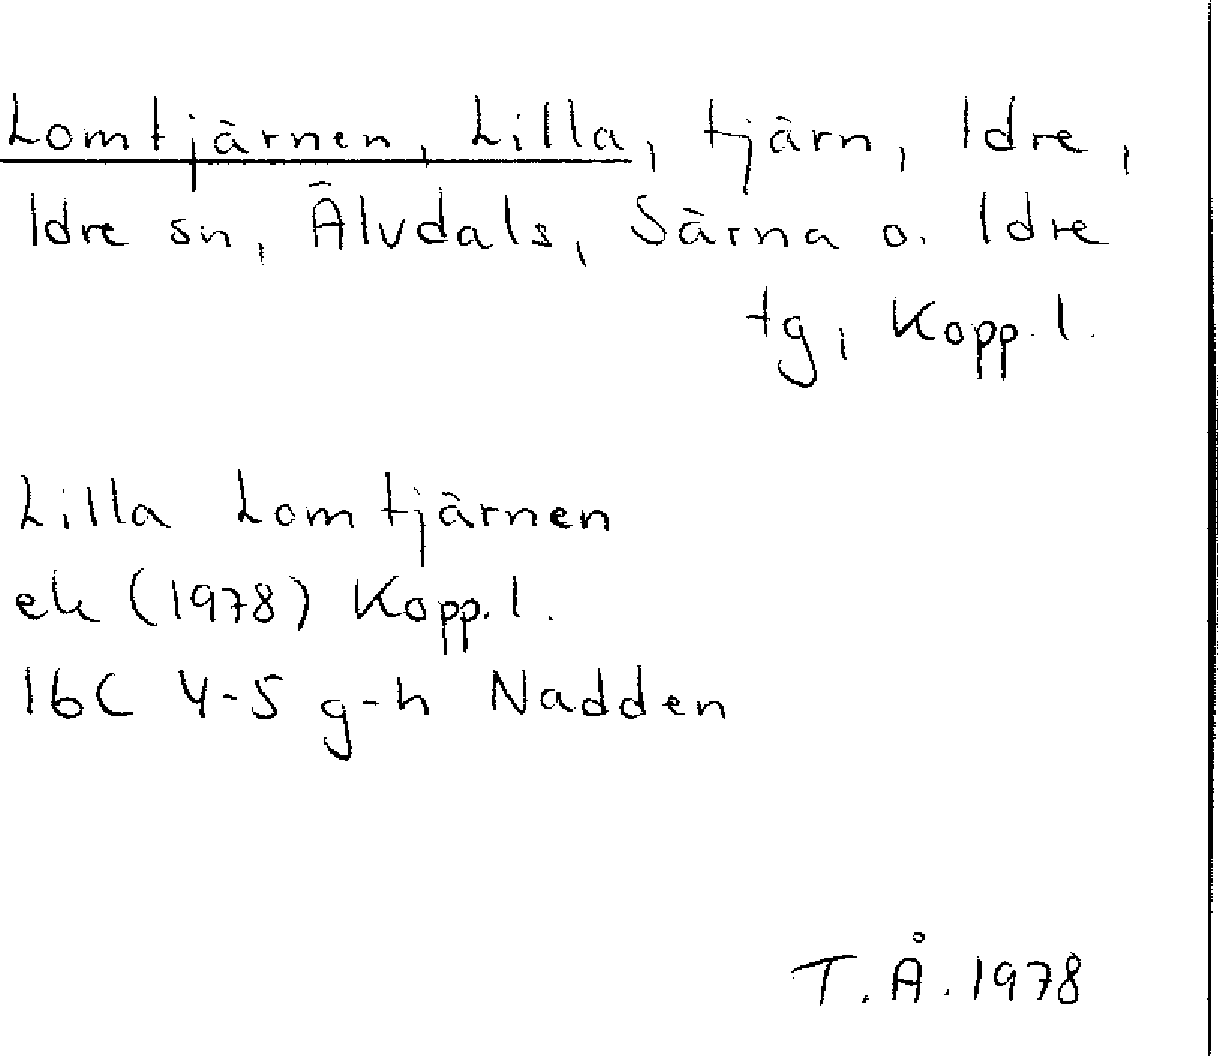 Lomtjärnen, Lilla, tjärn, Idre,
Idre sn, Älvdals, Särna o. Idre
tg, Kopp. l.
Lilla Lomtjärnen
ek (1978) Kopp. l.
16C 4-5 g-h Nadden
T. Å. 1978